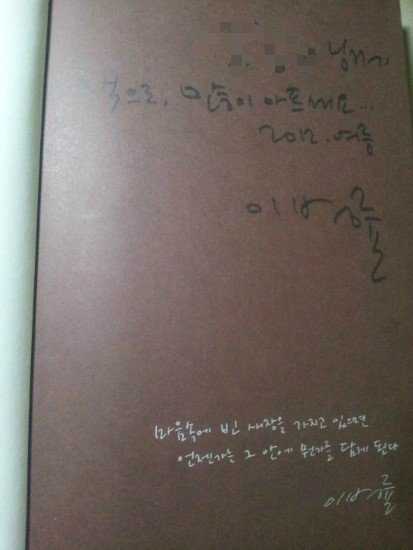 님께
벽으로, 많이 아프세요...
2012. 여름
이병률
마음속에 빈 새장을 가지고 있으면
언젠가는 그 안에 뭔가를 담게 된다
이병률